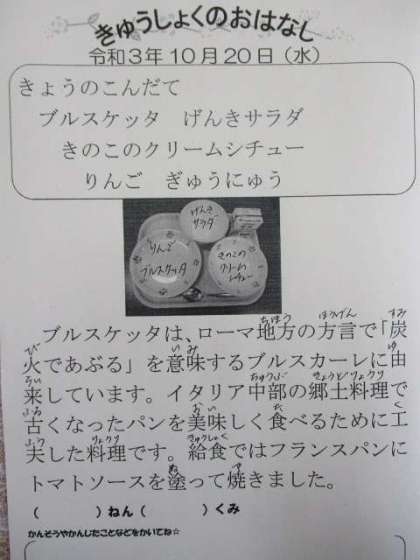 きゅうしょくのおはなし
令和3年10月20日(水)
きょうのこんだて
ブルスケッタ げんきサラダ
きのこのクリームシチュー
りんご ぎゅうにゅう
げんき
サラダ
りんご
ブルスケッタ
きのこの
クリーム
シチュー
ブルスケッタは、ローマ地方の方言で「炭
火であぶる」を意味するブルスカーレに由
来しています。イタリア中部の郷土料理で
古くなったパンを美味しく食べるために工
夫した料理です。給食ではフランスパンに
トマトソースを塗って焼きました。
( )ねん( )くみ
かんそうやかんじたことなどをかいてね☆